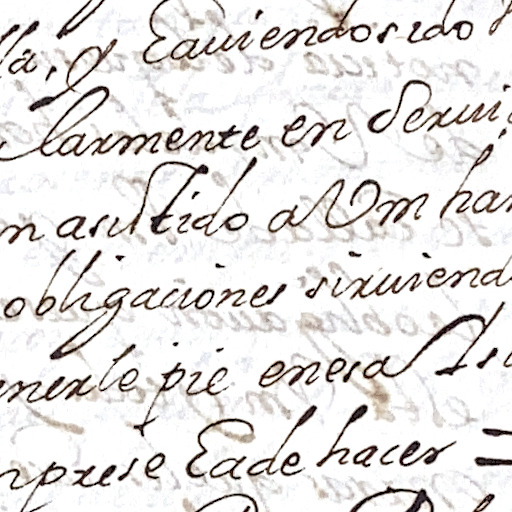 lla, y Eauiendosido
larmente en Serui
n asistido a Vm han
obligaciones siruiend
nerle pie enesa Isl
mprese Eade hacer =